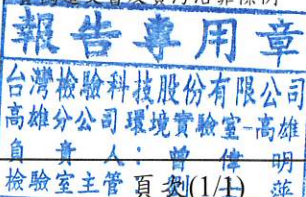 報告專用章
台灣檢驗科技股份有限公司
高雄分公司環境實驗室-高雄
負責人：曾偉明
檢驗室主管
頁次(1/1)
萍